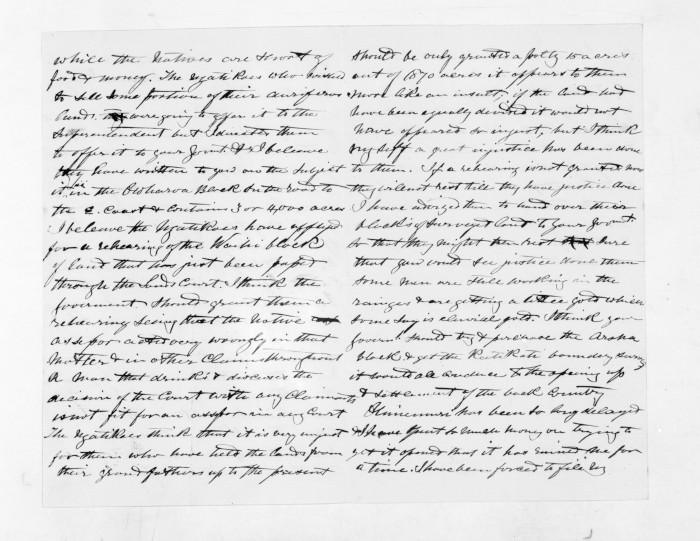 while the Natives are short of
food & money. The Ngatikoes who wished
to sell some portion of their auriferous
lands were going to offer it to the
Superentendent but I duested them
to offer it to your Govmt: & I beleave
they have written to you on the subject
it is in the Owharoa Block on the road to
the E. Coast & contains 3 or 4,000 acres
I beleave the Ngatikoes have applied
for a rehearing of the Waihi block
of land that has just been passed
through the Lands Court. I think the
Goverment should grant them a
rehearing seeing that the Native
assessor acted very wrongly in that
matter & in other Claims throughout
A man that drinks & discusses the
decision of the Court with any Claimants
is not fit for an assessor in any Court
The Ngatikoes think that it is very unjust
for them who have held the lands from
their grandfathers up to the present
should be only granted a paltry 10 acres
out of 1870 acres it appears to them
more like an insult, if the land had
have been equally divided it would not
have appeared so unjust, but I think
my self a great injustice has been done
to them. If a rehearing is not granted now
they will not rest till they have justice done
I have advized them to hand over their
block of surveyed land to your Govmt:
so that they might then rest sure
that you would see justice done them
Some men are still working in the
ranges & are getting a little gold which
some say is eluvial gold. I think your
Govern: should try & purchase the Aroha
block & get the Katikate boundary surveyed
it would all conduce to the opening up
& settlement of the back Country
Ohinemuri has been so long delayed
& I have spent so much money in trying to
get it opened that it has ruined me for
a time. I have been forced to file my